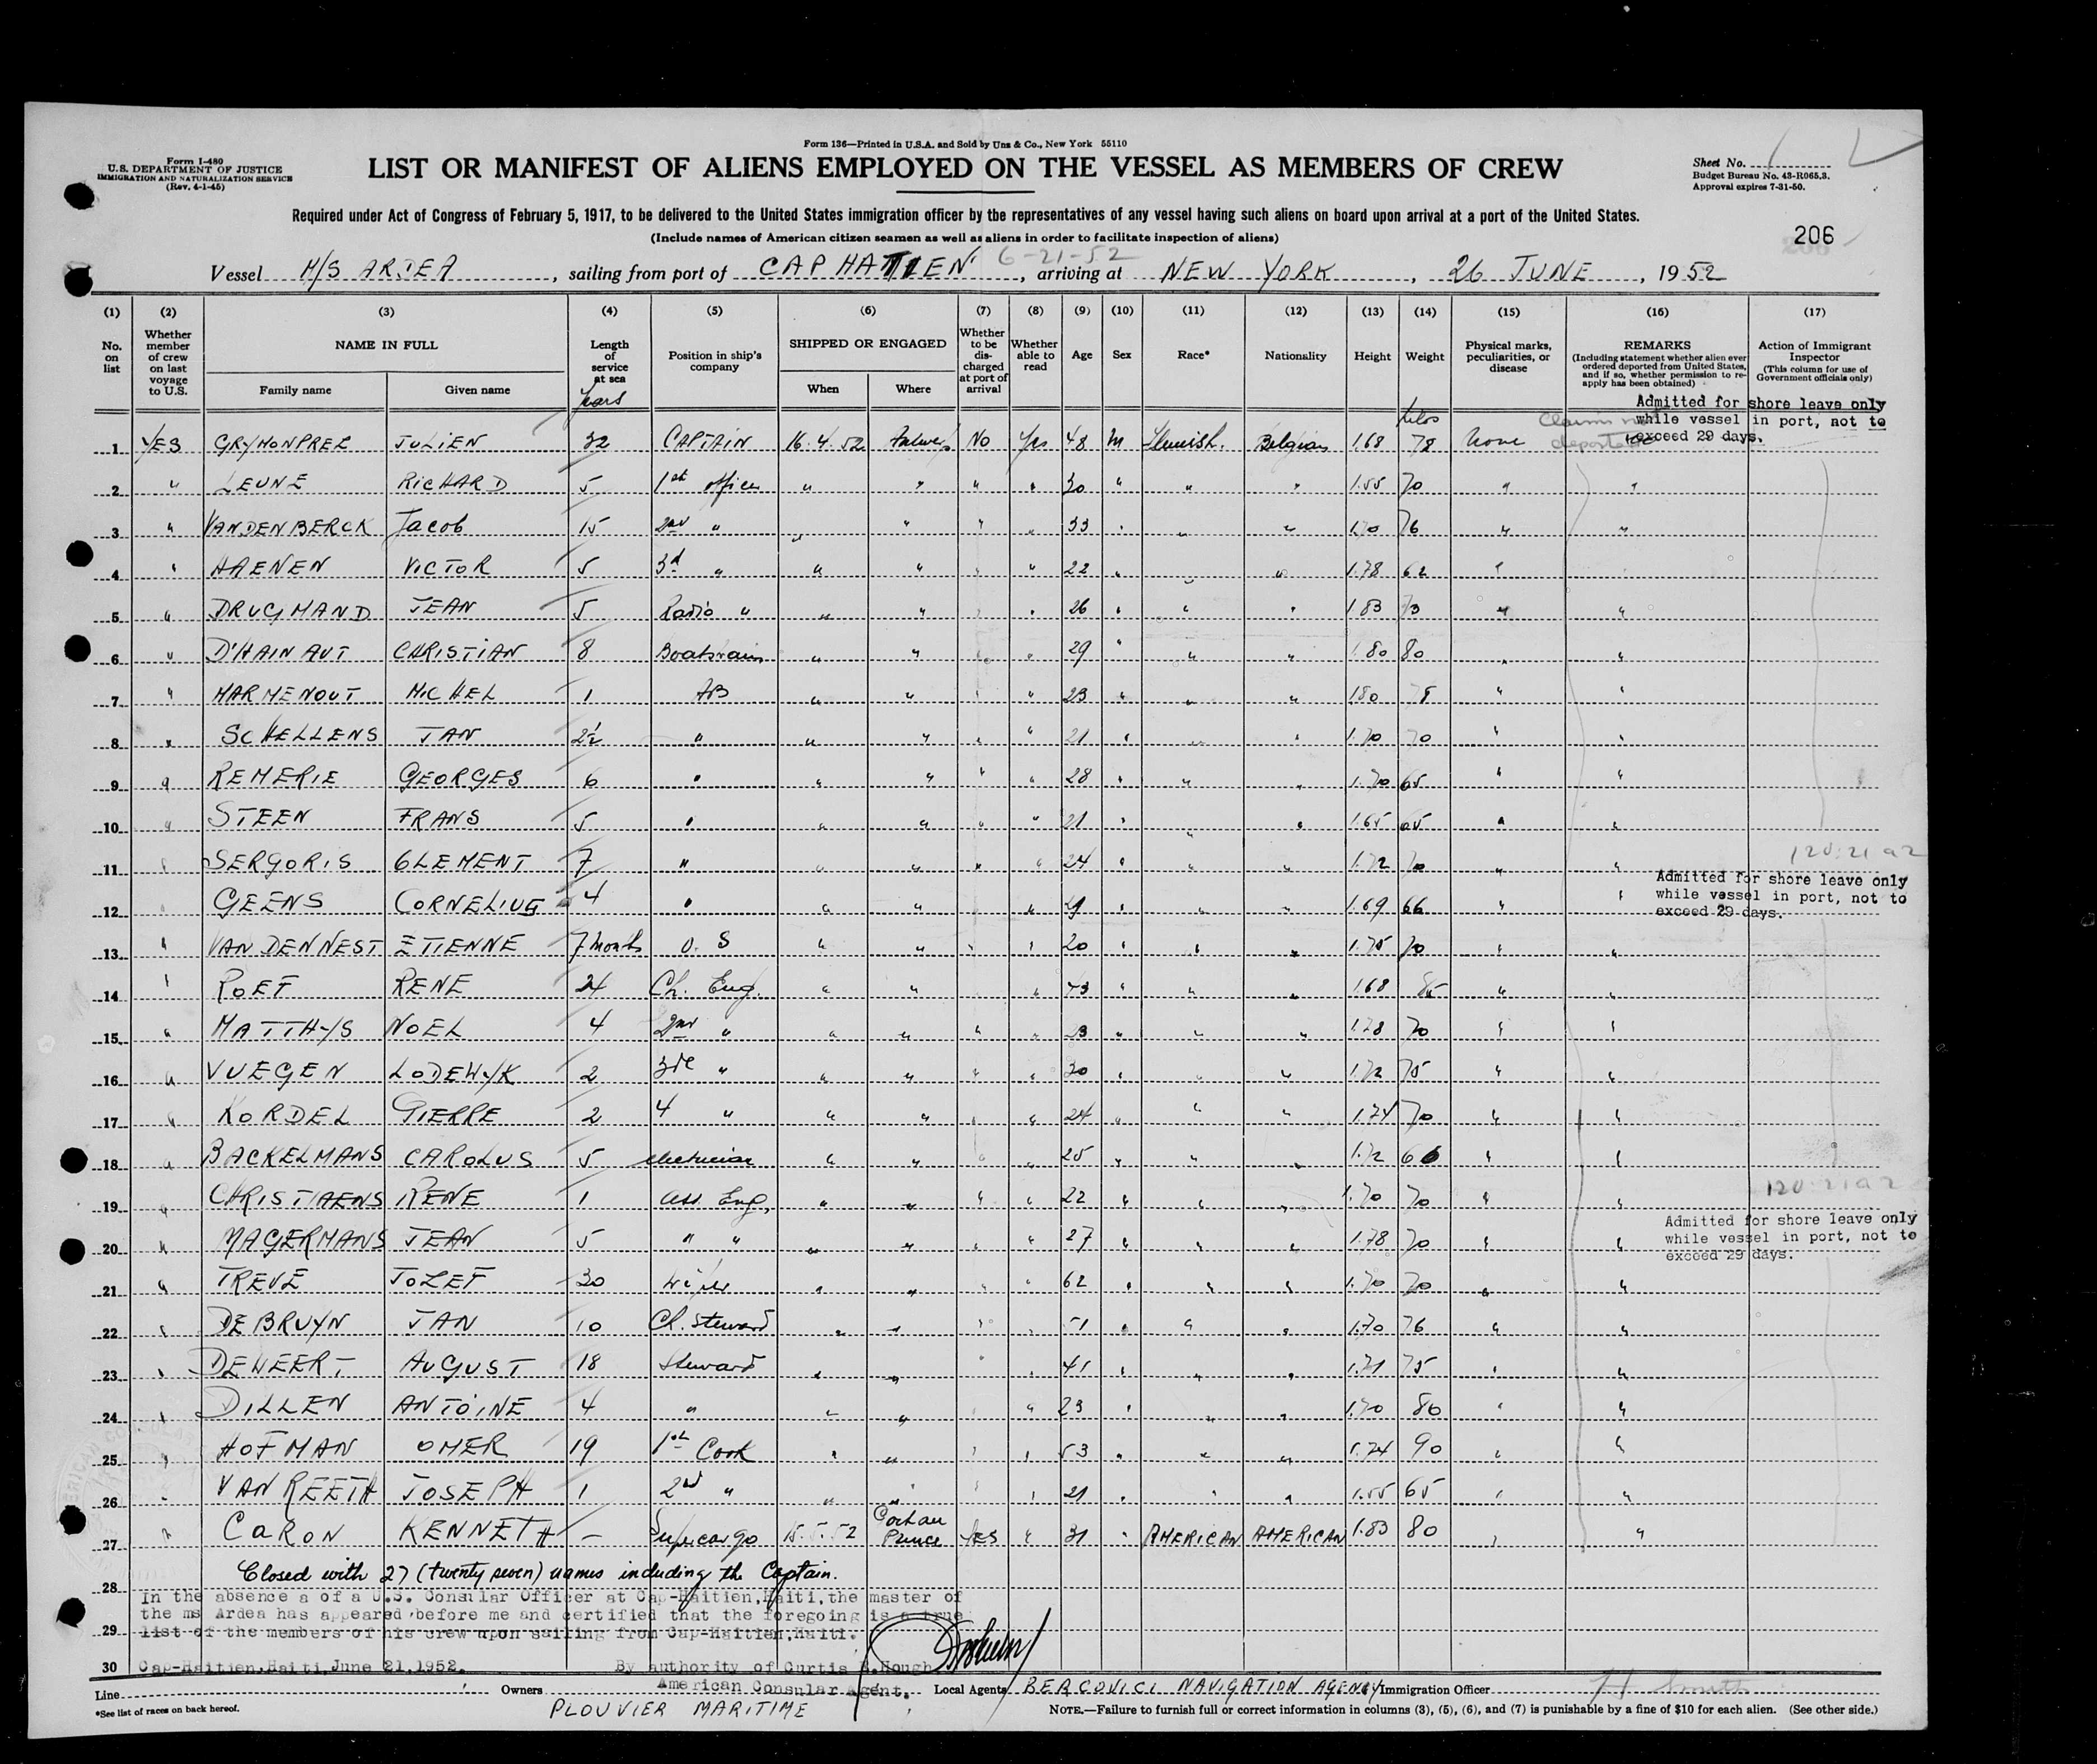 Form 136—Printed in U.S.A. and Sold by Unz & Co., New York 55110
Form I-480
U.S. DEPARTMENT OF JUSTICE
IMMIGRATION AND NATURALIZATION SERVICE
(Rev. 4-1-45)
LIST OR MANIFEST OF ALIENS EMPLOYED ON THE VESSEL AS MEMBERS OF CREW
Sheet No. 1
Budget Bureau No. 43-R065.3.
Approval expires 7-31-50.
Required under Act of Congress of February 5, 1917, to be delivered to the United States immigration officer by the representatives of any vessel having such aliens on board upon arrival at a port of the United States.
(Include names of American citizen seamen as well as aliens in order to facilitate inspection of aliens)
206
6-21-52
Vessel M/S ARDEA, sailing from port of CAP HAITIEN, arriving at NEW YORK, 26 JUNE, 1952
(1) (2) (3) (4) (5) (6) (7) (8) (9) (10) (11) (12) (13) (14) (15) (16) (17)
No. on list
Whether member of crew on last voyage to U.S.
NAME IN FULL
Family name
Given name
Length of service at sea
years
Position in ship's company
SHIPPED OR ENGAGED
When
Where
Whether to be discharged at port of arrival
Whether able to read
Age
Sex
Race*
Nationality
Height
Weight
kilos
Physical marks, peculiarities, or disease
REMARKS
(Including statement whether alien ever ordered deported from United States, and if so, whether permission to reapply has been obtained)
Action of Immigrant Inspector
(This column for use of Government officials only)
Admitted for shore leave only
while vessel in port, not to
exceed 29 days.
1 YES GRYMONPREZ JULIEN 32 CAPTAIN 16.4.52 Antwerp No Yes 48 M Flemish. Belgian 1.68 78 None
2 " LEUNE RICHARD 5 1st officer " " " " 30 " " " 1.55 70 " "
3 " VANDENBERCK Jacob 15 2nd " " " " " 33 " " " 1.70 76 " "
4 " HAENEN VICTOR 5 3d " " " " " 22 " " " 1.78 62 "
5 " DRUGMAND JEAN 5 Radio " " " " " 26 " " " 1.83 73 " "
6 " D'HAINAUT CHRISTIAN 8 Boatswain " " " " 29 " " " 1.80 80 " "
7 " MARMENOUT MICHEL 1 AB " " " " 23 " " " 1.80 " "
8 " SCHELLENS JAN 2½ " " " " " 21 " " " 1.70 70 " "
9 " REMERIE GEORGES 6 " " " " " 28 " " " 1.70 65 " "
10 " STEEN FRANS 5 " " " " " 21 " " " 1.65 65 " "
11 " SERGORIS CLEMENT 7 " " " " " 24 " " " 1.72 70 " "
Admitted for shore leave only
while vessel in port, not to
exceed 29 days.
12 " GEENS CORNELIUS 4 " " " " " " " " 1.69 66 " "
13 " VAN DEN NEST ETIENNE 7 months O.S " " " " 20 " " " 1.75 70 " "
14 " POET RENE 24 Ch. Eng. " " " 43 " " " 1.68 85 " "
15 " MATTHYS NOEL 4 2nd " " " " " 23 " " " 1.78 70 " "
16 " VUEGEN LODEWYK 2 3de " " " " " 30 " " " 1.72 75 " "
17 " KORDEL PIERRE 2 4 " " " " " 24 " " " 1.74 70 " "
18 " BACKELMANS CAROLUS 5 electrician " " " " 25 " " " 1.72 66 " "
19 " CHRISTIAENS RENE 1 Ass. Eng. " " " " 22 " " " 1.70 70 " "
20 " MAGERMANS JEAN 5 " " " " " " 27 " " " 1.78 70 " "
Admitted for shore leave only
while vessel in port, not to
exceed 29 days.
21 " TREVE JOZEF 30 Wiper " " " " 62 " " " 1.70 70 " "
22 " DE BRUYN JAN 10 Ch. Steward " " " " 51 " " " 1.70 76 " "
23 " DEWEERT AUGUST 18 Steward " " " " 41 " " " 1.71 75 " "
24 " DILLEN ANTOINE 4 " " " " 23 " " " 1.70 80 " "
25 " HOFMAN OMER 19 1st Cook " " " " 53 " " " 1.74 90 " "
26 " VAN REETH JOSEPH 1 2nd " " " " " 21 " " " 1.55 65 " "
27 " CARON KENNETH — Supercargo 15.5.52 Port au Prince YES " 31 " AMERICAN AMERICAN 1.83 80 " "
Closed with 27 (twenty seven) names including the Captain.
28
In the absence a of a U.S. Consular Officer at Cap-Haitien, Haiti, the master of
the ms Ardea has appeared before me and certified that the foregoing is a true
29 list of the members of his crew upon sailing from Cap-Haitien, Haiti.
30 Cap-Haitien, Haiti June 21, 1952. By authority of Curtis R. Hough
American Consular Agent.
Line Owners PLOUVIER MARITIME Local Agents BERCOVICI NAVIGATION AGENCY Immigration Officer H Smith
*See list of races on back hereof.
NOTE.—Failure to furnish full or correct information in columns (3), (5), (6), and (7) is punishable by a fine of $10 for each alien. (See other side.)